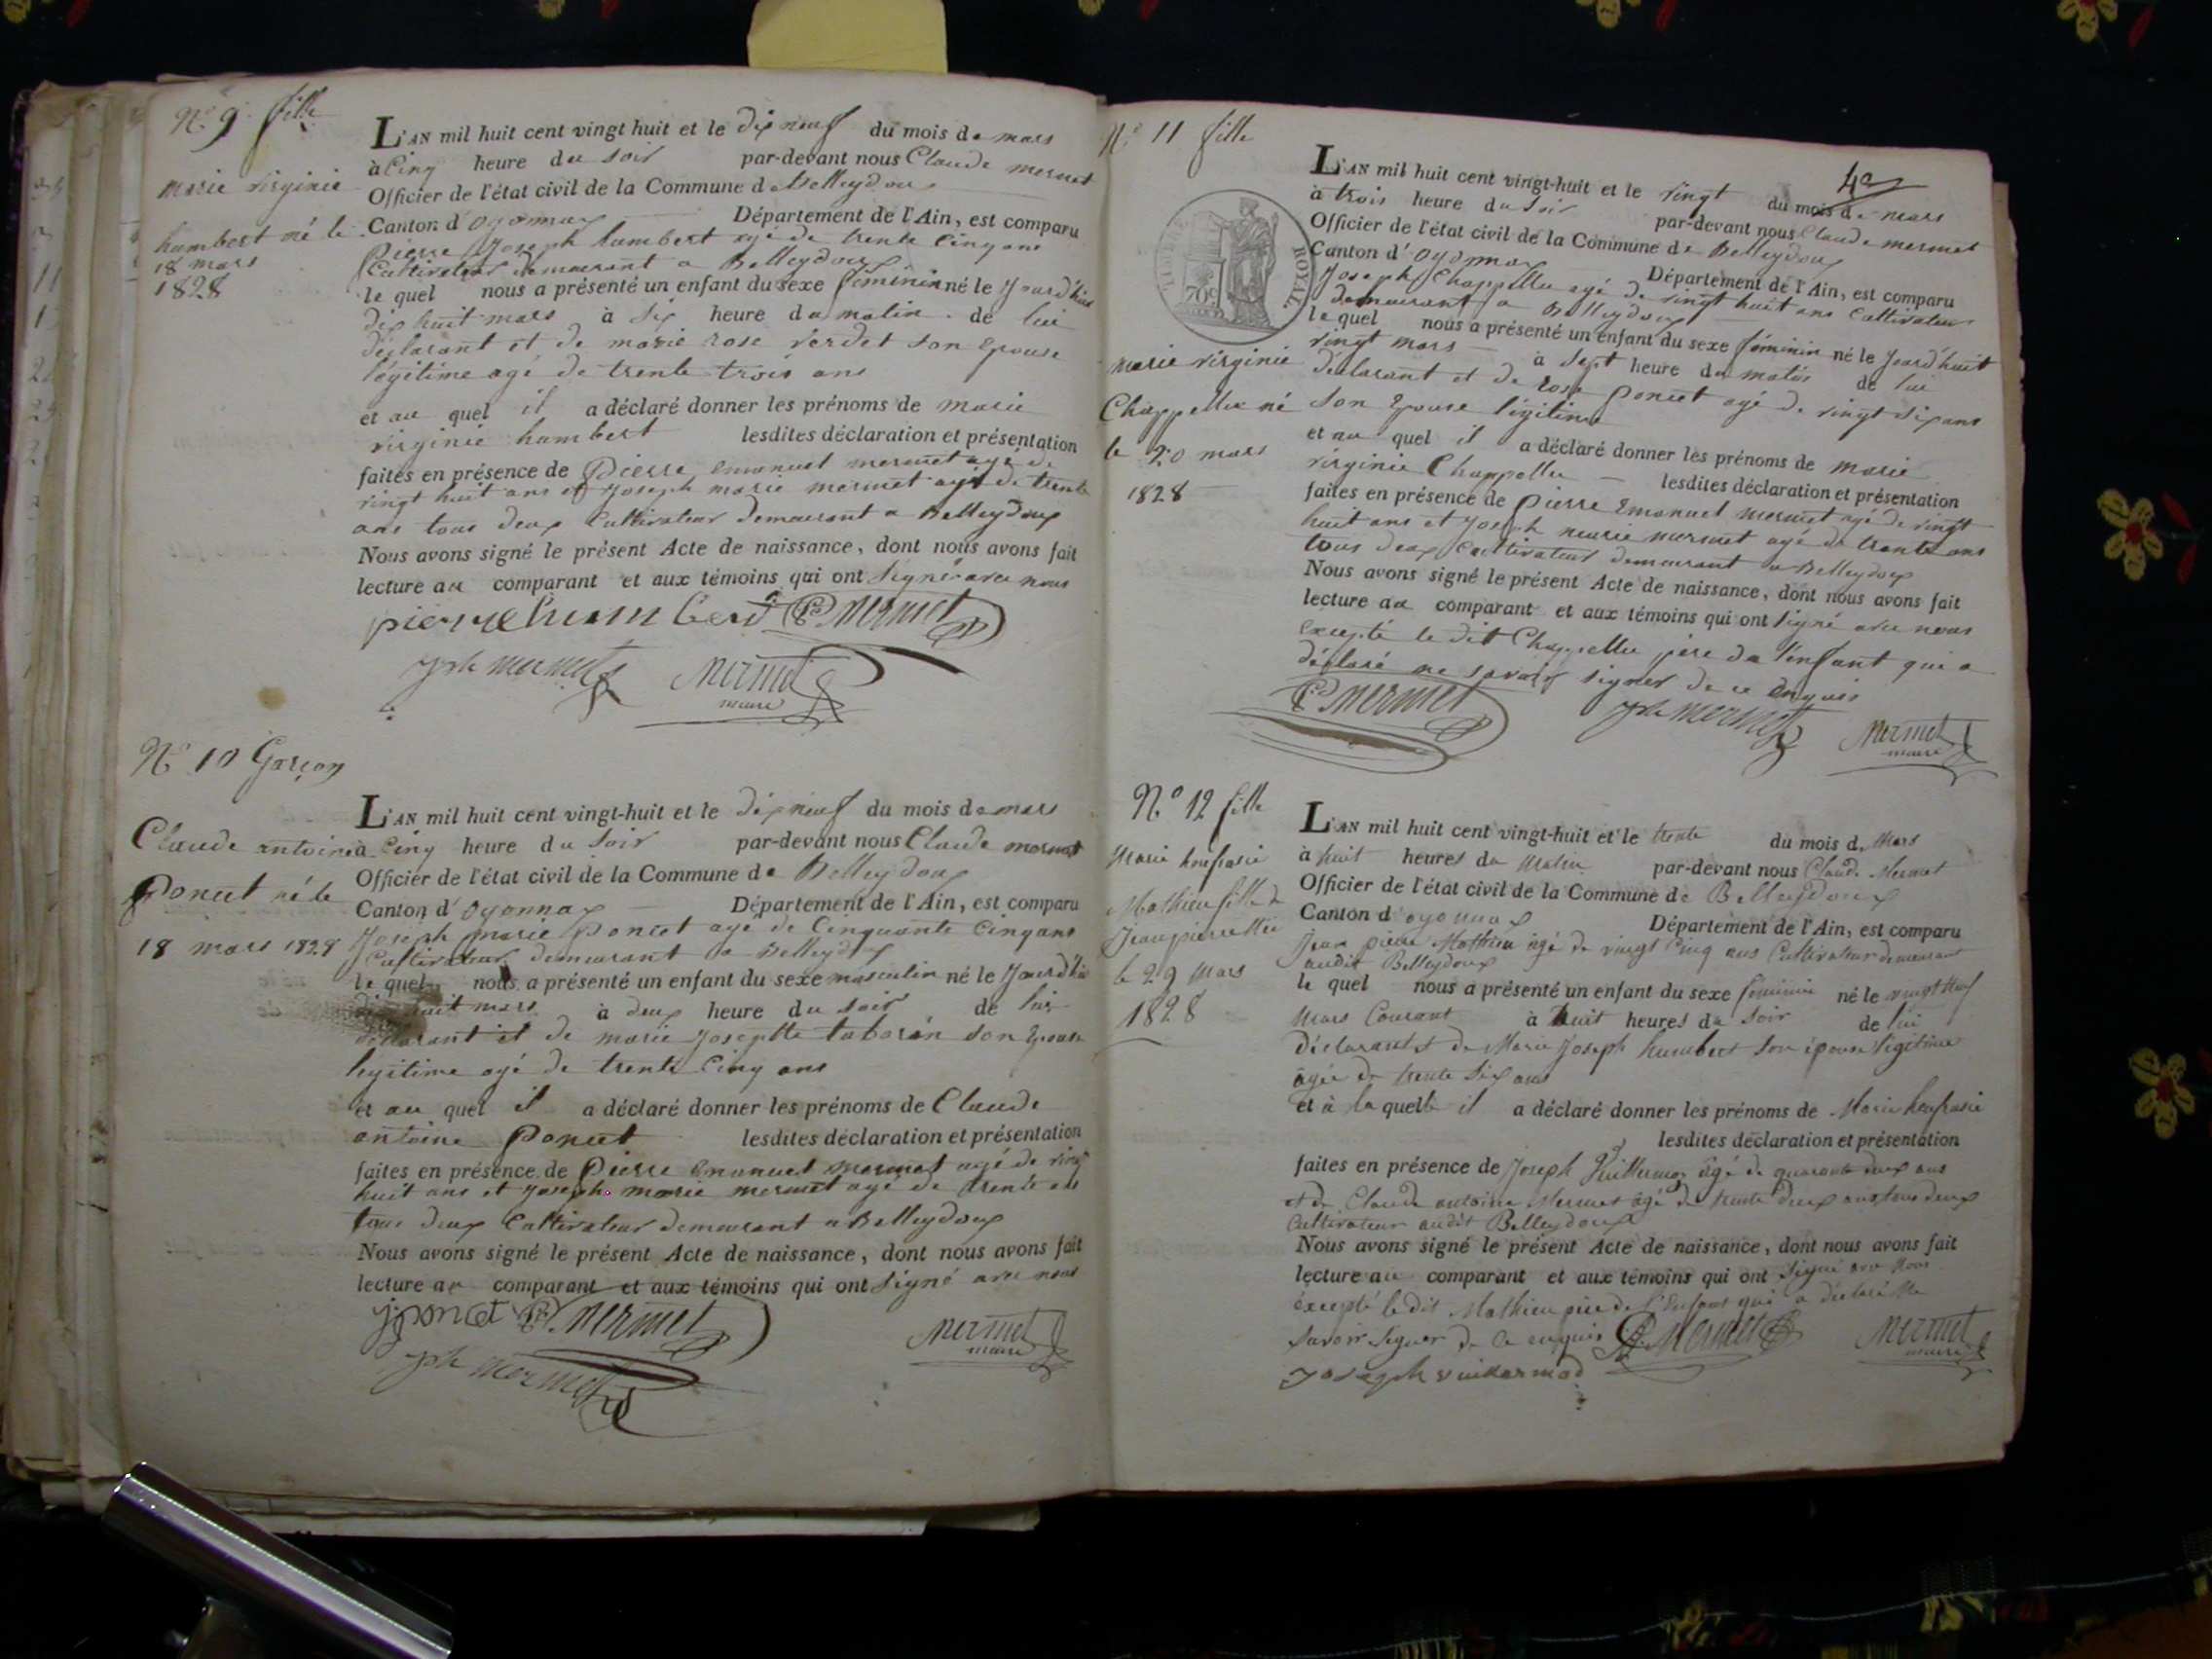 N° 9 fille
marie virginie
humbert né le
18 mars
1828
L'AN mil huit cent vingt huit et le dix neuf du mois de mars
à Cinq heure du soir par-devant nous Claude mermet
Officier de l'état civil de la Commune de Belleydoux
Canton d'oyonnax Département de l'Ain, est comparu
Pierre Joseph humbert agé de trente Cinq ans
Cultivateur demeurant a Belleydoux
le quel nous a présenté un enfant du sexe féminin né le
dix huit mars à six heure du matin de lui
déclarant et de marie rose verdet son Epouse
légitime agé de trente trois ans
et au quel il a déclaré donner les prénoms de marie
virginie humbert lesdites déclaration et présentation
faites en présence de Pierre Emanuel mermet agé de
vingt huit ans et Joseph marie mermet agé de trente
ans tous deux Cultivateur demeurant a Belleydoux
Nous avons signé le présent Acte de naissance, dont nous avons fait
lecture au comparant et aux témoins qui ont signé avec nous
pierre humbert P. mermet
Jph mermet mermet
maire
N° 10 Garçon
Claude antoine
Poncet né le
18 mars 1828
L'AN mil huit cent vingt-huit et le dix neuf du mois de mars
à Cinq heure du soir par-devant nous Claude mermet
Officier de l'état civil de la Commune de Belleydoux
Canton d'oyonnax Département de l'Ain, est comparu
Joseph marie Poncet agé de Cinquante Cinq ans
Cultivateur demeurant a Belleydoux
le quel nous a présenté un enfant du sexe masculin né le
dix huit mars à deux heure du soir de lui
déclarant et de marie Josephte tabarin son Epouse
legitime agé de trente Cinq ans
et au quel il a déclaré donner les prénoms de Claude
antoine Poncet lesdites déclaration et présentation
faites en présence de Pierre Emanuel mermet agé de vingt
huit ans et Joseph marie mermet agé de trente ans
tous deux Cultivateur demeurant a Belleydoux
Nous avons signé le présent Acte de naissance, dont nous avons fait
lecture au comparant et aux témoins qui ont signé avec nous
j poncet P. mermet mermet
maire
Jph mermet
N° 11 fille
4e
TIMBRE ROYAL
70c
marie virginie
Chappellu né
le 20 mars
1828
L'AN mil huit cent vingt-huit et le vingt du mois de mars
à trois heure du soir par-devant nous Claude mermet
Officier de l'état civil de la Commune de Belleydoux
Canton d'oyonnax Département de l'Ain, est comparu
Joseph Chappellu agé de vingt huit ans Cultivateur
demeurant a Belleydoux
le quel nous a présenté un enfant du sexe féminin né le
vingt mars à sept heure du matin de lui
déclarant et de rose Poncet agé de vingt six ans
son Epouse légitime
et au quel il a déclaré donner les prénoms de marie
virginie Chappellu lesdites déclaration et présentation
faites en présence de Pierre Emanuel mermet agé de vingt
huit ans et Joseph marie mermet agé de trente ans
tous deux Cultivateur demeurant a Belleydoux
Nous avons signé le présent Acte de naissance, dont nous avons fait
lecture au comparant et aux témoins qui ont signé avec nous
excepté le dit Chappellu père de l'enfant qui a
déclaré ne savoir signer de ce enquis
P. mermet Jph mermet mermet
maire
N.° 12 fille
Marie
Mathieu fille de
Jean pierre
le 29 Mars
1828
L'AN mil huit cent vingt-huit et le trente du mois de Mars
à huit heures du Matin par-devant nous Claude Mermet
Officier de l'état civil de la Commune de Belleydoux
Canton d'oyonnax Département de l'Ain, est comparu
Jean pierre Mathieu âgé de vingt Cinq ans Cultivateur demeurant
audit Belleydoux
le quel nous a présenté un enfant du sexe féminin né le vingt neuf
Mars Courant à huit heures du soir de lui
déclarant et de Marie Joseph humbert son épouse légitime
âgée de trente six ans
et à la quelle il a déclaré donner les prénoms de Marie
lesdites déclaration et présentation
faites en présence de Joseph Vuillermoz âgé de quarante deux ans
et de Claude antoine Mermet âgé de trente deux ans tous deux
Cultivateur audit Belleydoux
Nous avons signé le présent Acte de naissance, dont nous avons fait
lecture au comparant et aux témoins qui ont signé avec Nous
excepté le dit Mathieu père de l'Enfant qui a déclaré Ne
savoir signer de Ce enquis Mermet mermet
maire
Joseph vuillermoz